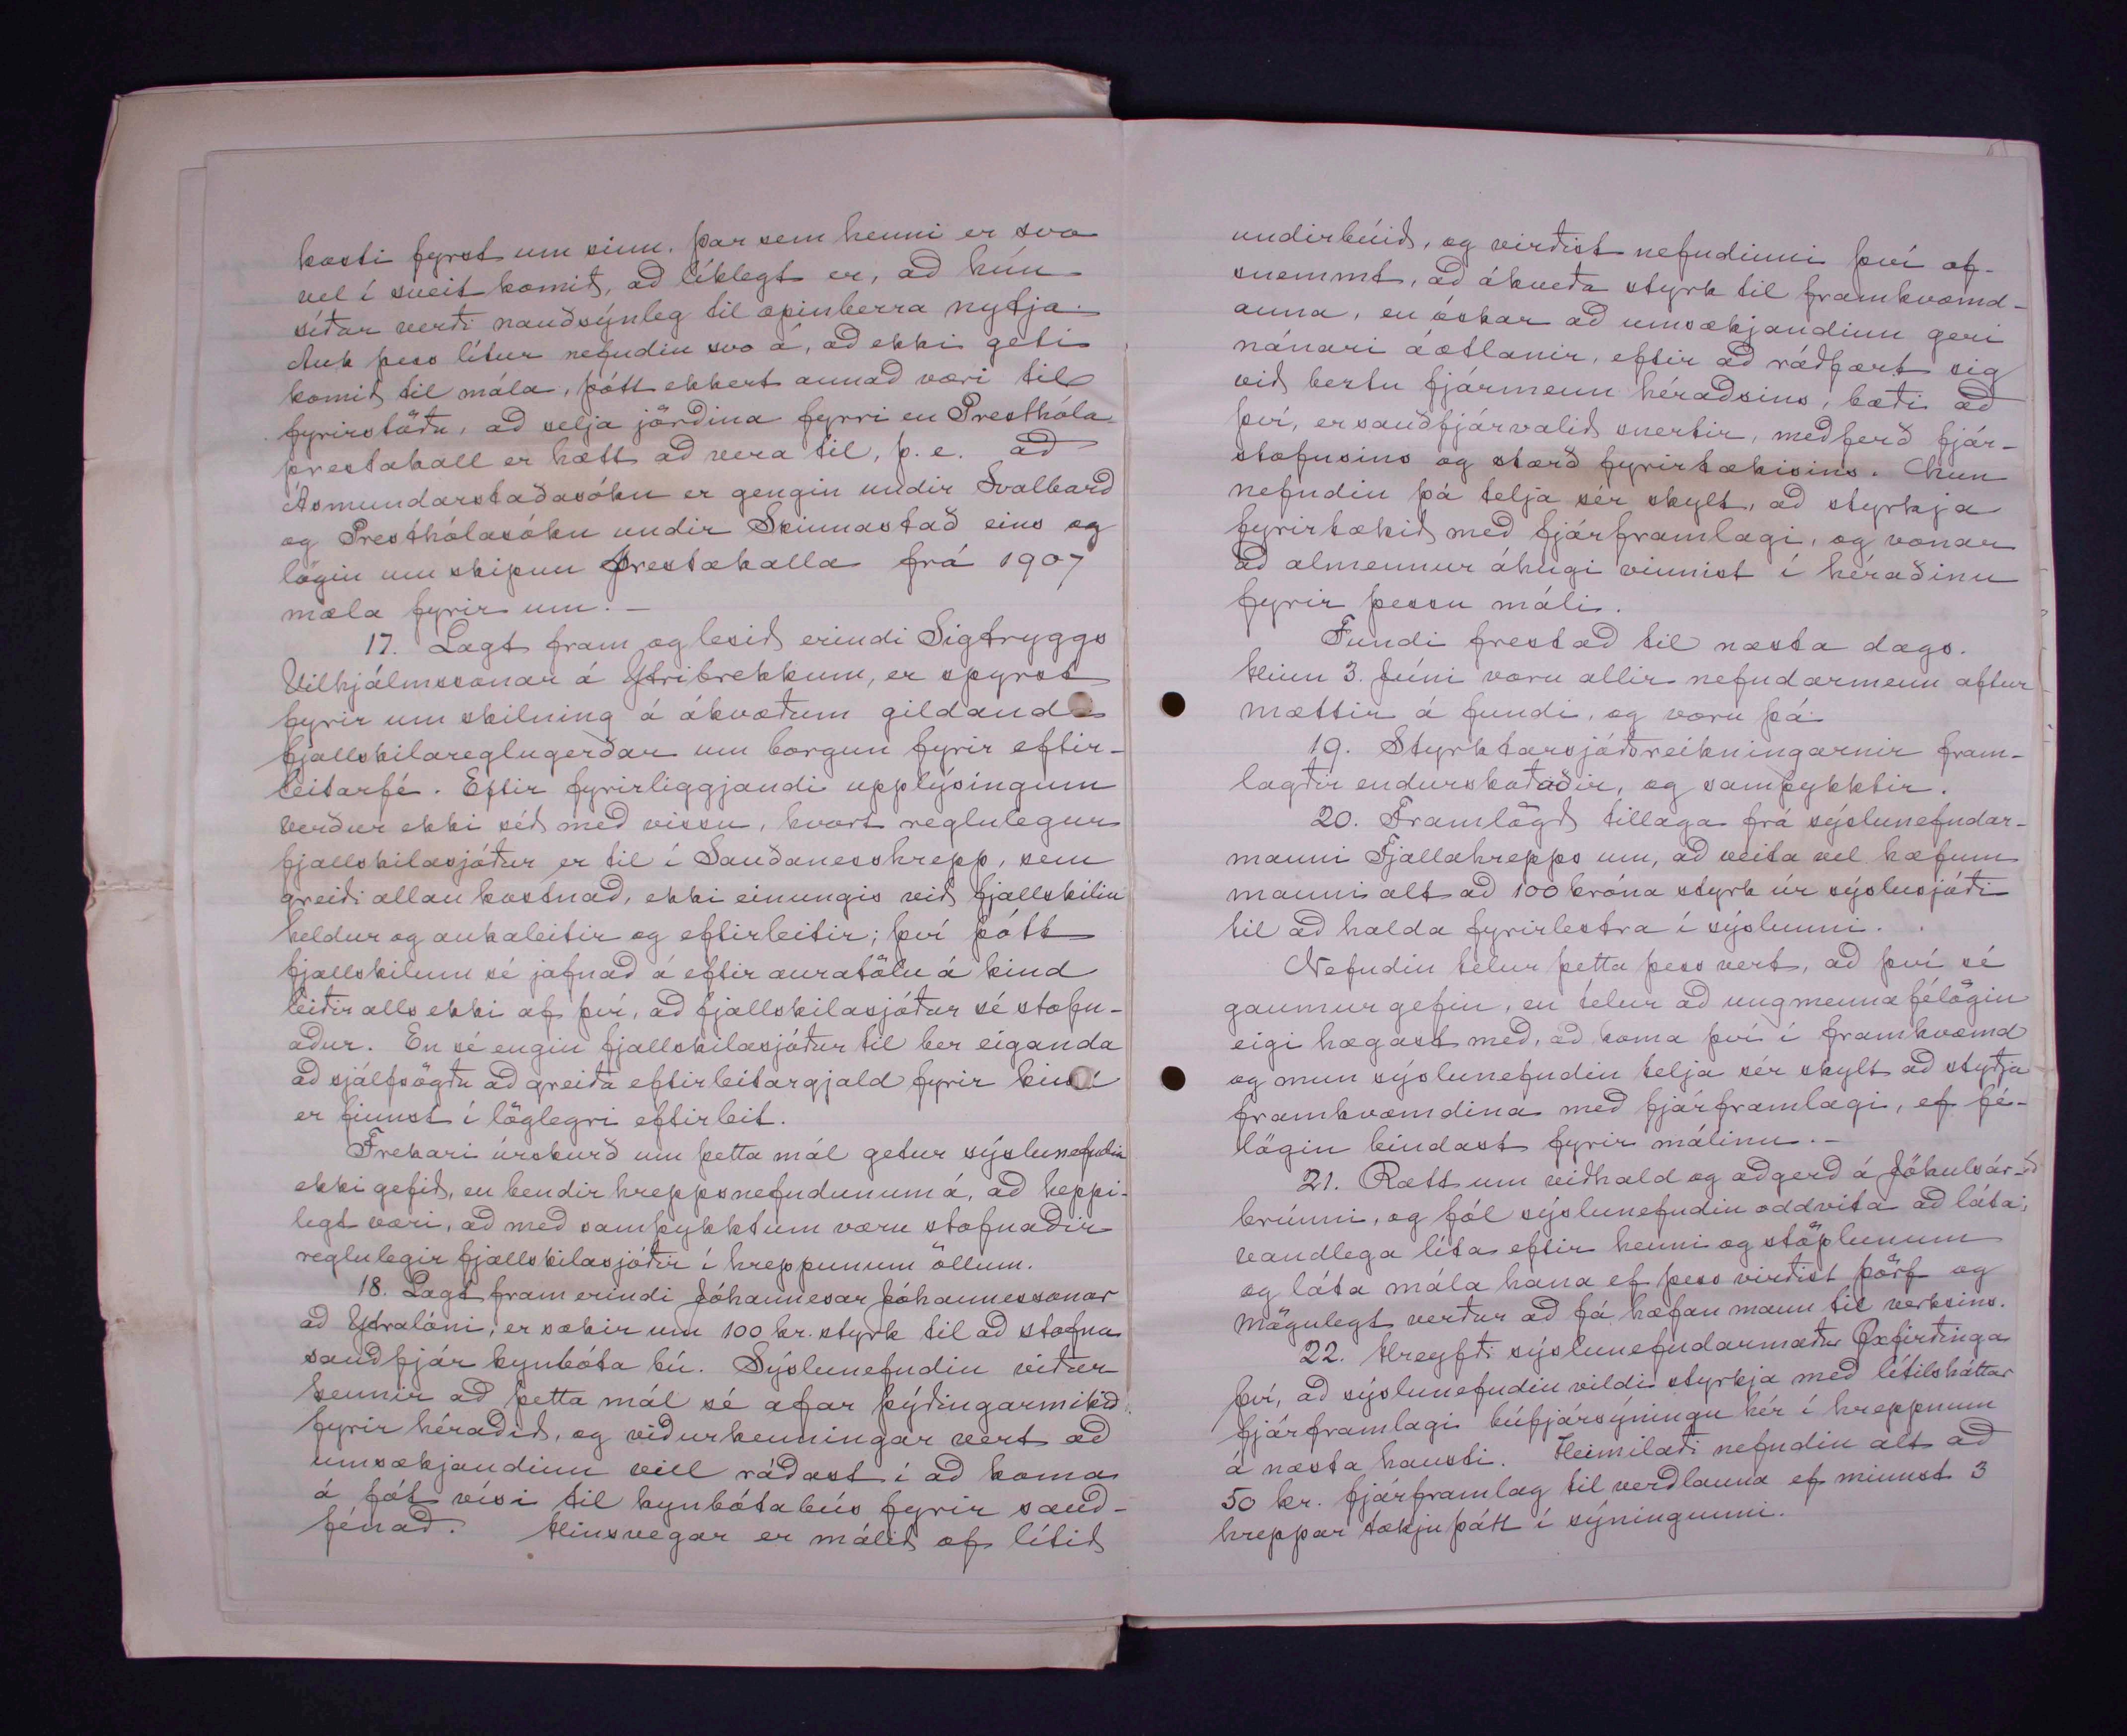 kosti fyrst um sinn, þar sem henni er svo
vel í sveit komið, að líklegt er, að hún
síðar verði nauðsýnleg til opinberra nytja.
Auk þess lítur nefndin svo á, að ekki geti
komið til mála, þótt ekkert annað væri til
fyrirstöðu, að selja jörðina fyrri en Presthóla-
prestakall er hætt að vera til, þ.e. að
Ásmundarstaðasókn er gengin undir Svalbarð
og Presthólasókn undir Skinnastað eins og
lögin um skipun prestakalla frá 1907
mæla fyrir um. —
17. Lagt fram og lesið erindi Sigtryggs
Vilhjálmssonar á Ytribrekkum, er spyrst
fyrir um skilning á ákvæðum gildandi
fjallskilareglugerðar um borgun fyrir eftir-
leitarfé. Eftir fyrirliggjandi upplýsingum
verður ekki séð með vissu, hvort reglulegur
fjallskilasjóður er til í Sauðaneshrepp, sem
greiði allan kostnað, ekki einungis við fjallskilin
heldur og aukaleitir og eftirleitir; því þótt
fjallskilum sé jafnað á eftir auratölu á kind
leiðir alls ekki af því, að fjallskilasjóður sé stofn-
aður. En sé engin fjallskilasjóður til ber eiganda
að sjálfsögðu að greiða eftirleitargjald fyrir kind
er finnst í löglegri eftirleit.
Frekari úrskurð um þetta mál getur sýslunefndin
ekki gefið, en bendir hreppsnefndunum á, að heppi-
legt væri, að með samþykktum væru stofnaðir
reglulegir fjallskilasjóðir í hreppunum öllum.
18. Lagt fram erindi Jóhannesar Jóhannessonar
að Ytralóni, er sækir um 100 kr. styrk til að stofna
sauðfjár kynbóta bú. Sýslunefndin viður
kennir að þetta mál sé afar þýðingarmikið
fyrir héraðið, og viðurkenningar vert að
umsækjandinn vill ráðast í að koma
á fót vísi til kynbótabús fyrir sauð-
fénað. Hinsvegar er málið of lítið
undirbúið, og virðist nefndinni því of-
snemmt, að ákveða styrk til framkvæmd-
anna, en óskar að umsækjandinn geri
nánari áætlanir, eftir að ráðfært sig
við bestu fjármenn héraðsins, bæði að
því, er sauðfjárvalið snertir, meðferð fjár-
stofnsins og stærð fyrirtækisins. Mun
nefndin þá telja sér skylt, að styrkja
fyrirtækið með fjárframlagi, og vonar
að almennur áhugi vinnist í héraðinu
fyrir þessu máli.
Fundi frestað til næsta dags.
Hinn 3. Júní voru allir nefndarmenn aftur
mættir á fundi, og voru þá
19. Styrktarsjóðsreikningarnir fram-
lagðir endurskoðaðir, og samþykktir.
20. Framlögð tillaga frá sýslunefndar-
manni Fjallahrepps um, að veita vel hæfum
manni alt að 100 króna styrk úr sýslusjóði
til að halda fyrirlestra í sýslunni.
Nefndin telur þetta þess vert, að því sé
gaumur gefin, en telur að ungmennafélögin
eigi hægast með, að koma því í framkvæmd
og mun sýslunefndin telja sér skylt að styðja
framkvæmdina með fjárframlagi, ef fé-
lögin bindast fyrir málinu. —
21. Rætt um viðhald og aðgerð á Jökulsár-
brúnni, og fól sýslunefndin oddvita að láta
vandlega líta eftir henni og stöplunum
og láta mála hana ef þess virðist þörf og
mögulegt verður að fá hæfan mann til verksins.
22. Hreyfði sýslunefndarmaður Öxfirðinga
því, að sýslunefndin vildi styrkja með lítilsháttar
fjárframlagi búfjársýningu hér í hreppnum
á næsta hausti. Heimilaði nefndin alt að
50 kr. fjárframlag til verðlauna ef minnst 3
hreppar tækju þátt í sýningunni.